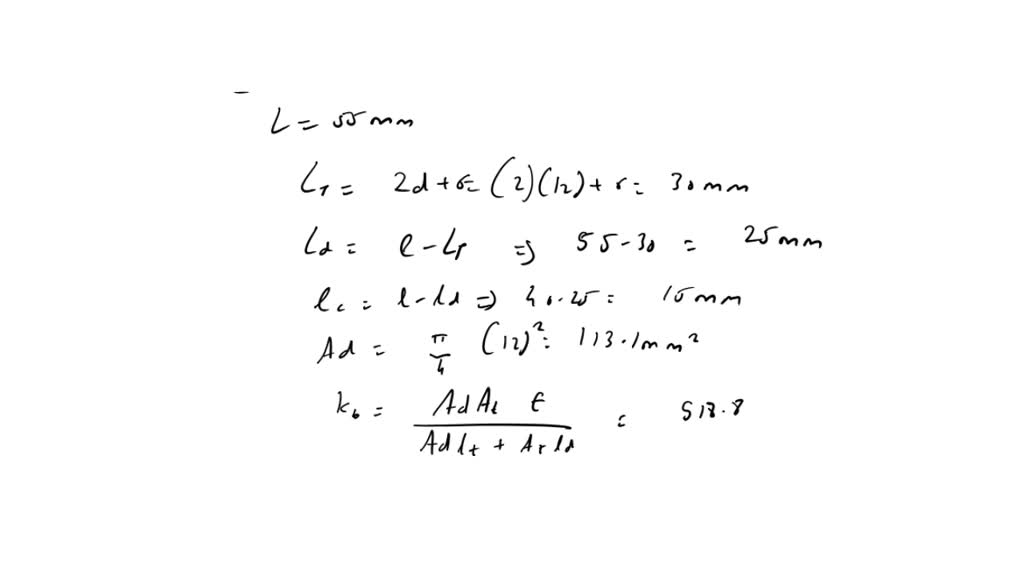 L = 55 mm
L_T = 2d + 6 = (2)(12) + 6 = 30 mm
L_d = l - L_T => 55 - 30 = 25 mm
l_t = l - l_d => 40 - 25 = 15 mm
A_d = π/4 (12)² = 113.1 mm²
k_b = A_d A_t E / A_d l_t + A_t l_d = 518.8